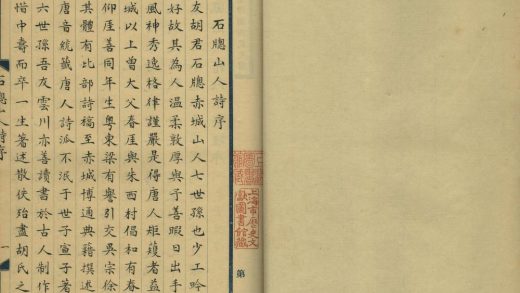 第
上海市歷史文
獻圖書館藏
石牕山人詩序
友胡君石牕赤城山人七世孫也少工吟
好故其為人溫柔敦厚與予善暇日出手
風神秀逸格律謹嚴是得唐人矩矱者益
城以上曾大父春厓與朱西村倡和有春
仰厓善同年生粵東梁有譽引交吳宗徐
其體有比部詩稿至赤城博通典籍撰述
唐音統籤唐人詩派不泯于世子宣子著
六世孫吾友雲川亦善讀書於古人制作
惜中壽而卒一生著述散佚殆盡胡氏之
石牕山人詩序 一